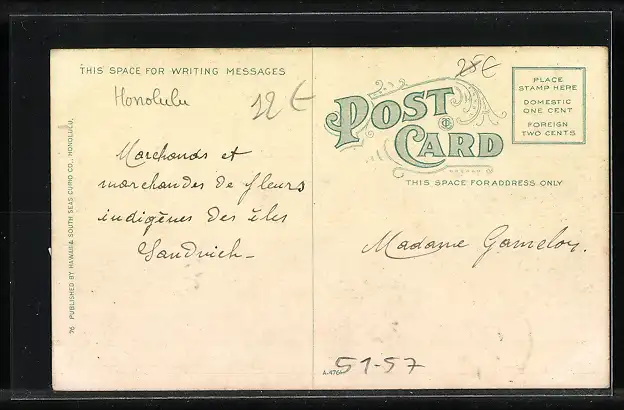 THIS SPACE FOR WRITING MESSAGES
Honolulu
12 €
Marchands et
marchandes de fleurs
indigènes des îles
Sandwich -
76 PUBLISHED BY HAWAII & SOUTH SEAS CURIO CO., HONOLULU.
25€
POST
CARD
PLACE
STAMP HERE
DOMESTIC
ONE CENT
FOREIGN
TWO CENTS
THIS SPACE FOR ADDRESS ONLY
Madame Gameloy.
51-57